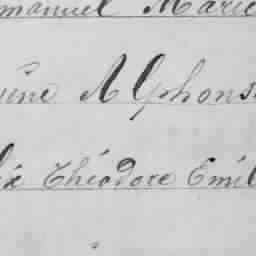 manuel Marie
ine Alphons
lix Théodore Emil